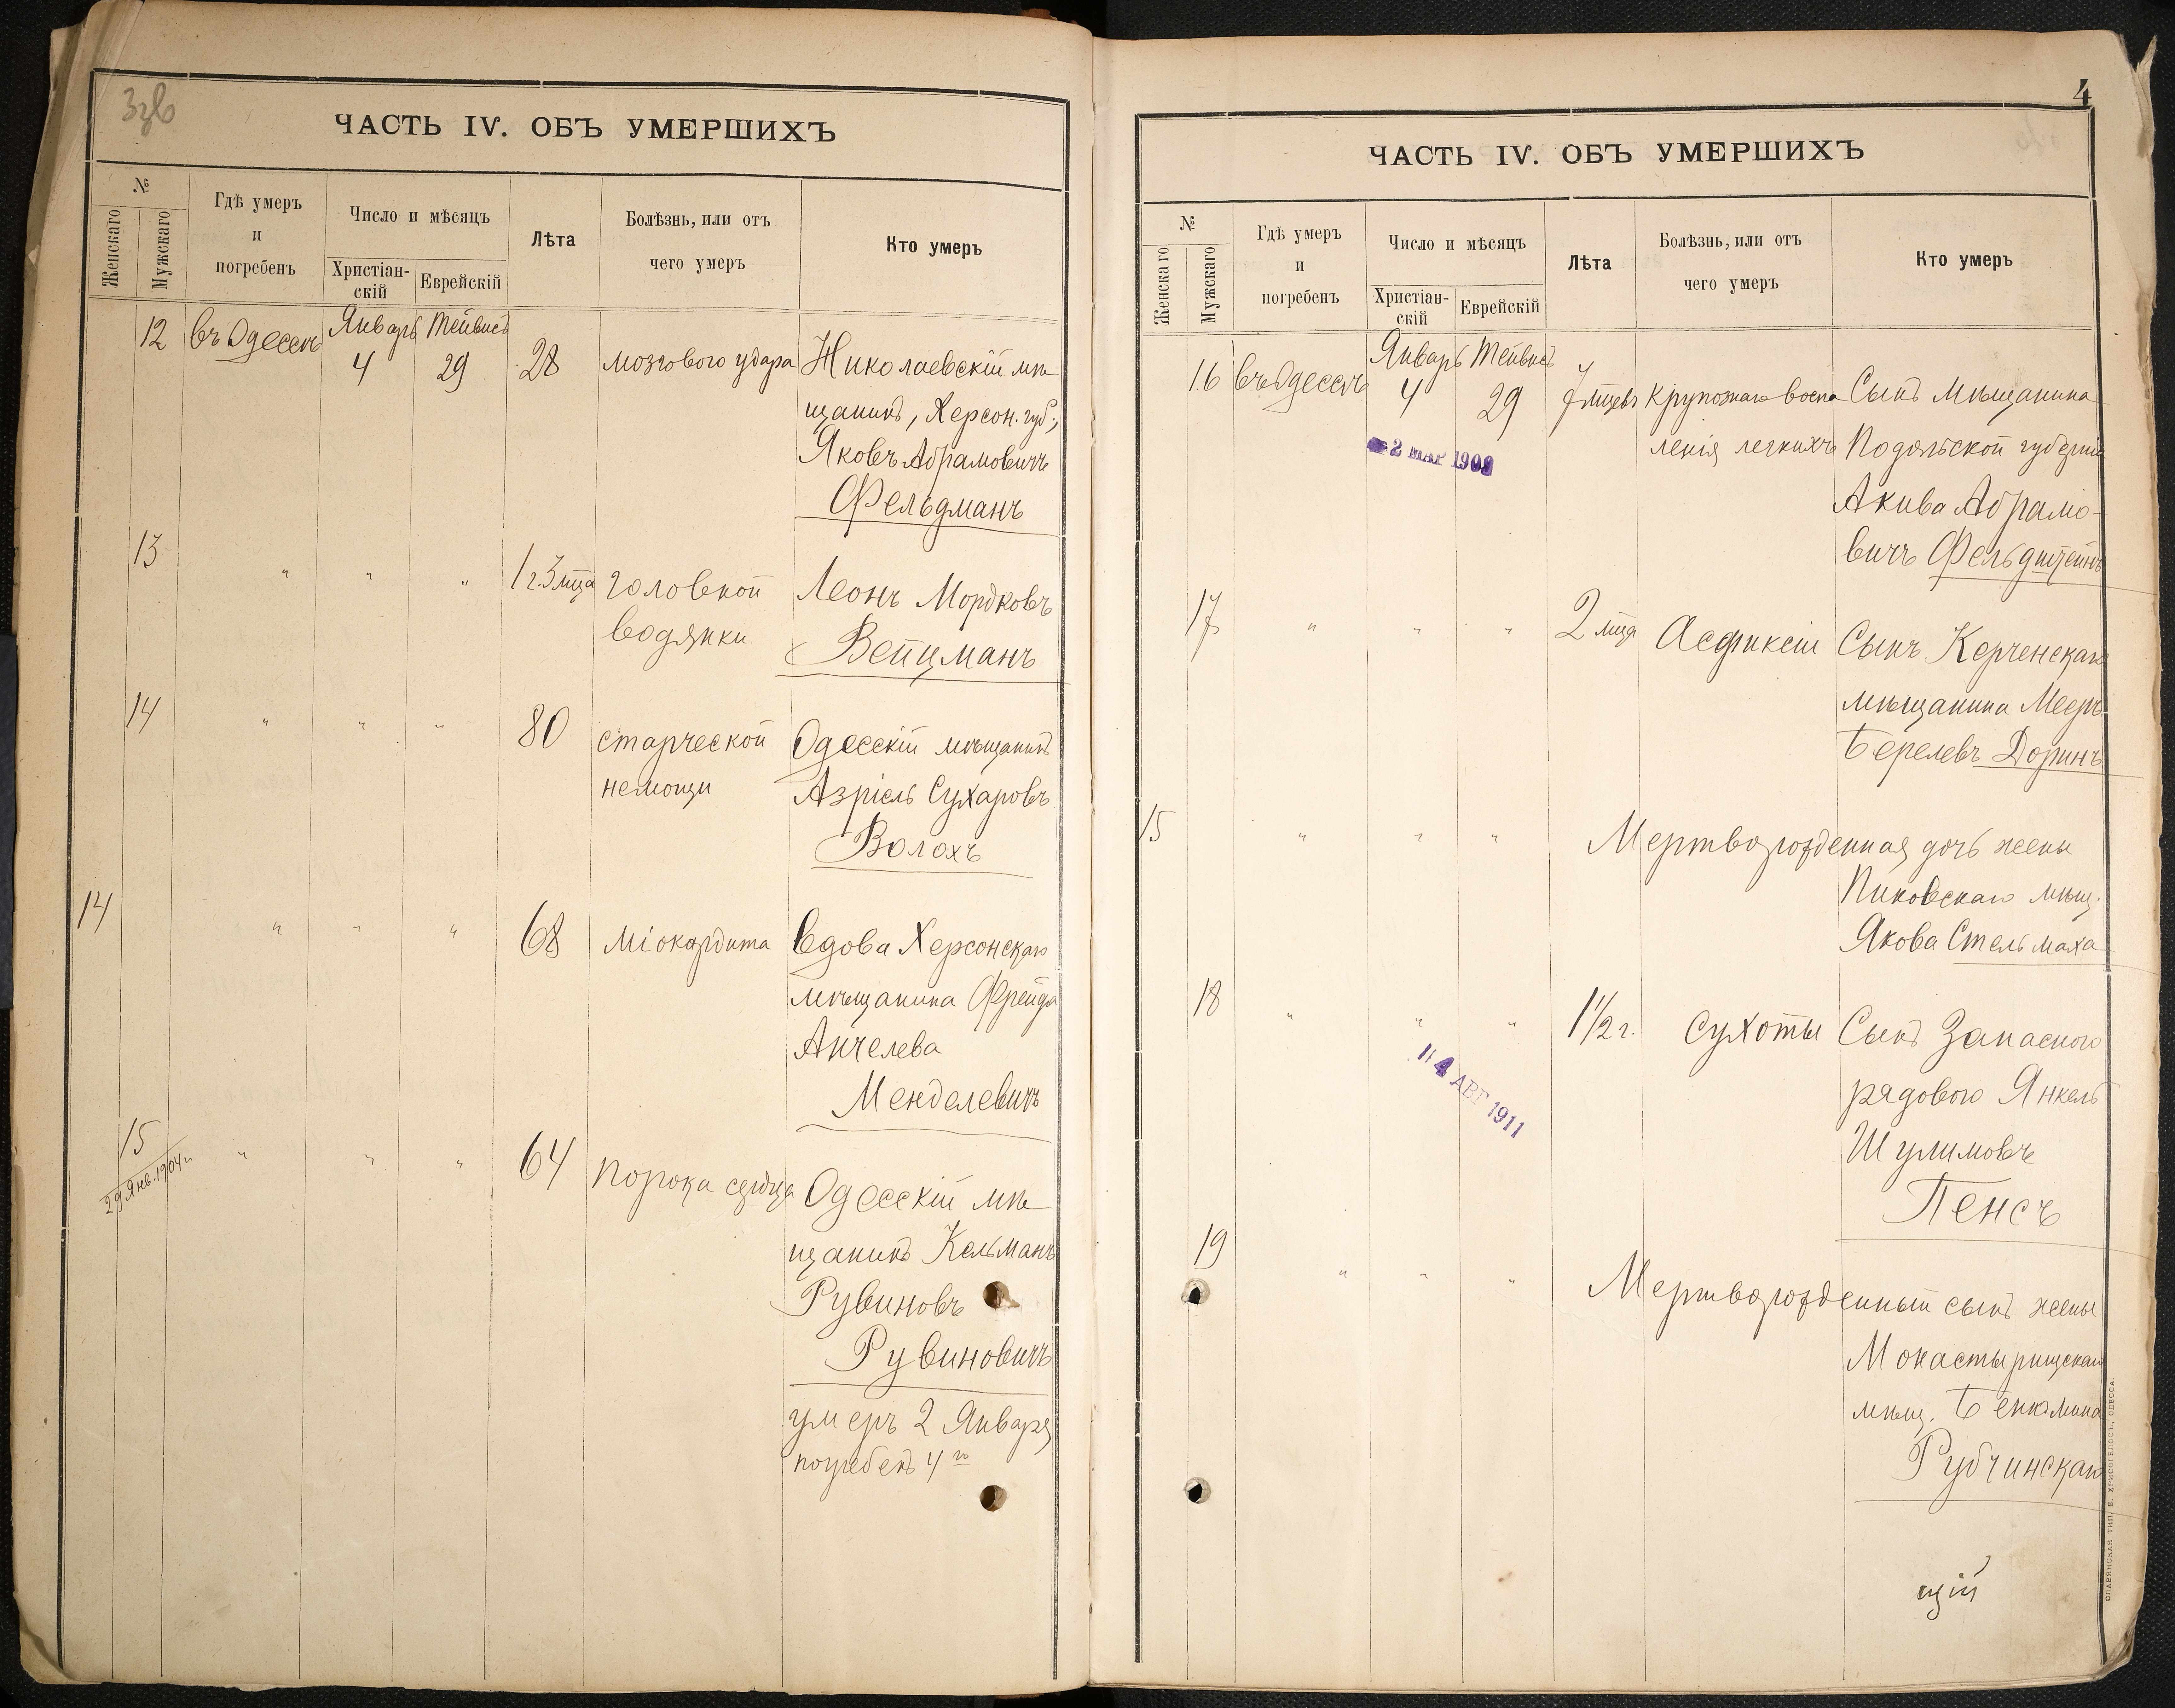 Ззв
ЧАСТЬ IV. ОБЪ УМЕРШИХЪ
№
Женскаго
Мужскаго
Гдѣ умеръ
и
погребенъ
Число и мѣсяцъ
Христіан-
скій
Еврейскій
Лѣта
Болѣзнь, или отъ
чего умеръ
Кто умеръ
12 въ Одессѣ Январь 4 Тейвисъ 29 28 мозгового удара Николаевскій мѣ
щанинъ, Херсон. губ.,
Яковъ Абрамовичъ
Фельдманъ
13 " " " 1 г. 3 мца головной Леонъ Мордковъ
водянки Вейцманъ
14 " " " 80 старческой Одесскій мѣщанинъ
немощи Азріель Сухаровъ
Волохъ
14 " " " 68 міокардита Вдова Херсонскаго
мѣщанина Фрейда
Анчелева
Менделевичъ
15 " " " 64 порока сердца Одесскій мѣ
29 Янв. 1904 г.
щанинъ Кельманъ
Рувиновъ
Рувиновичъ
умеръ 2 Января
погребенъ 4го
4
ЧАСТЬ IV. ОБЪ УМЕРШИХЪ
№
Женскаго
Мужскаго
Гдѣ умеръ
и
погребенъ
Число и мѣсяцъ
Христіан-
скій
Еврейскій
Лѣта
Болѣзнь, или отъ
чего умеръ
Кто умеръ
16 въ Одессѣ Январь 4 Тейвисъ 29 7 мцевъ крупознаго воспа Сынъ мѣщанина
2 МАР
ленія легкихъ Подольской губерніи
Акива Абрамо-
вичъ Фельдштейнъ
17 " " " 2 мца Асфиксіи Сынъ Керченскаго
мѣщанина Мееръ
Берелевъ Доринъ
15 " " " Мертворожденная дочь жены
Пиковскаго мѣщ.
Якова Стельмаха
18 " " " 1 1/2 г. Сухоты Сынъ Запасного
4 АВГ 1911
рядового Янкель
Шулимовъ
Пенсъ
19 " " " Мертворожденный сынъ жены
Монастырищскаго
мѣщ. Беніамина
Рубчинскаго
щій
СЛАВЯНСКАЯ ТИП. Е. ХРИСОГЕЛОСЪ, ОДЕССА.